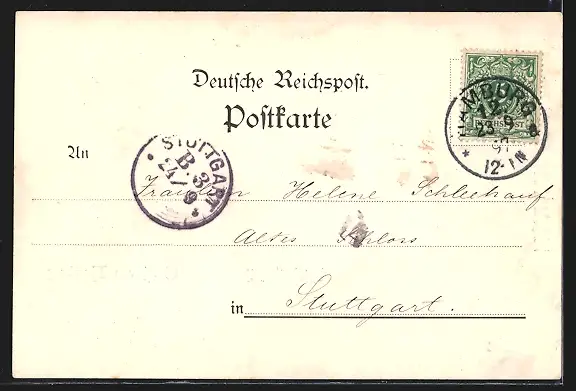 Deutsche Reichspost.
Postkarte
HAMBURG
12
23 9
97
12-1N
* a
REICHSPOST
An
STUTTGART
B.3
24/9
Fräulein Helene Schleehauf
Altes Schloss
in Stuttgart.